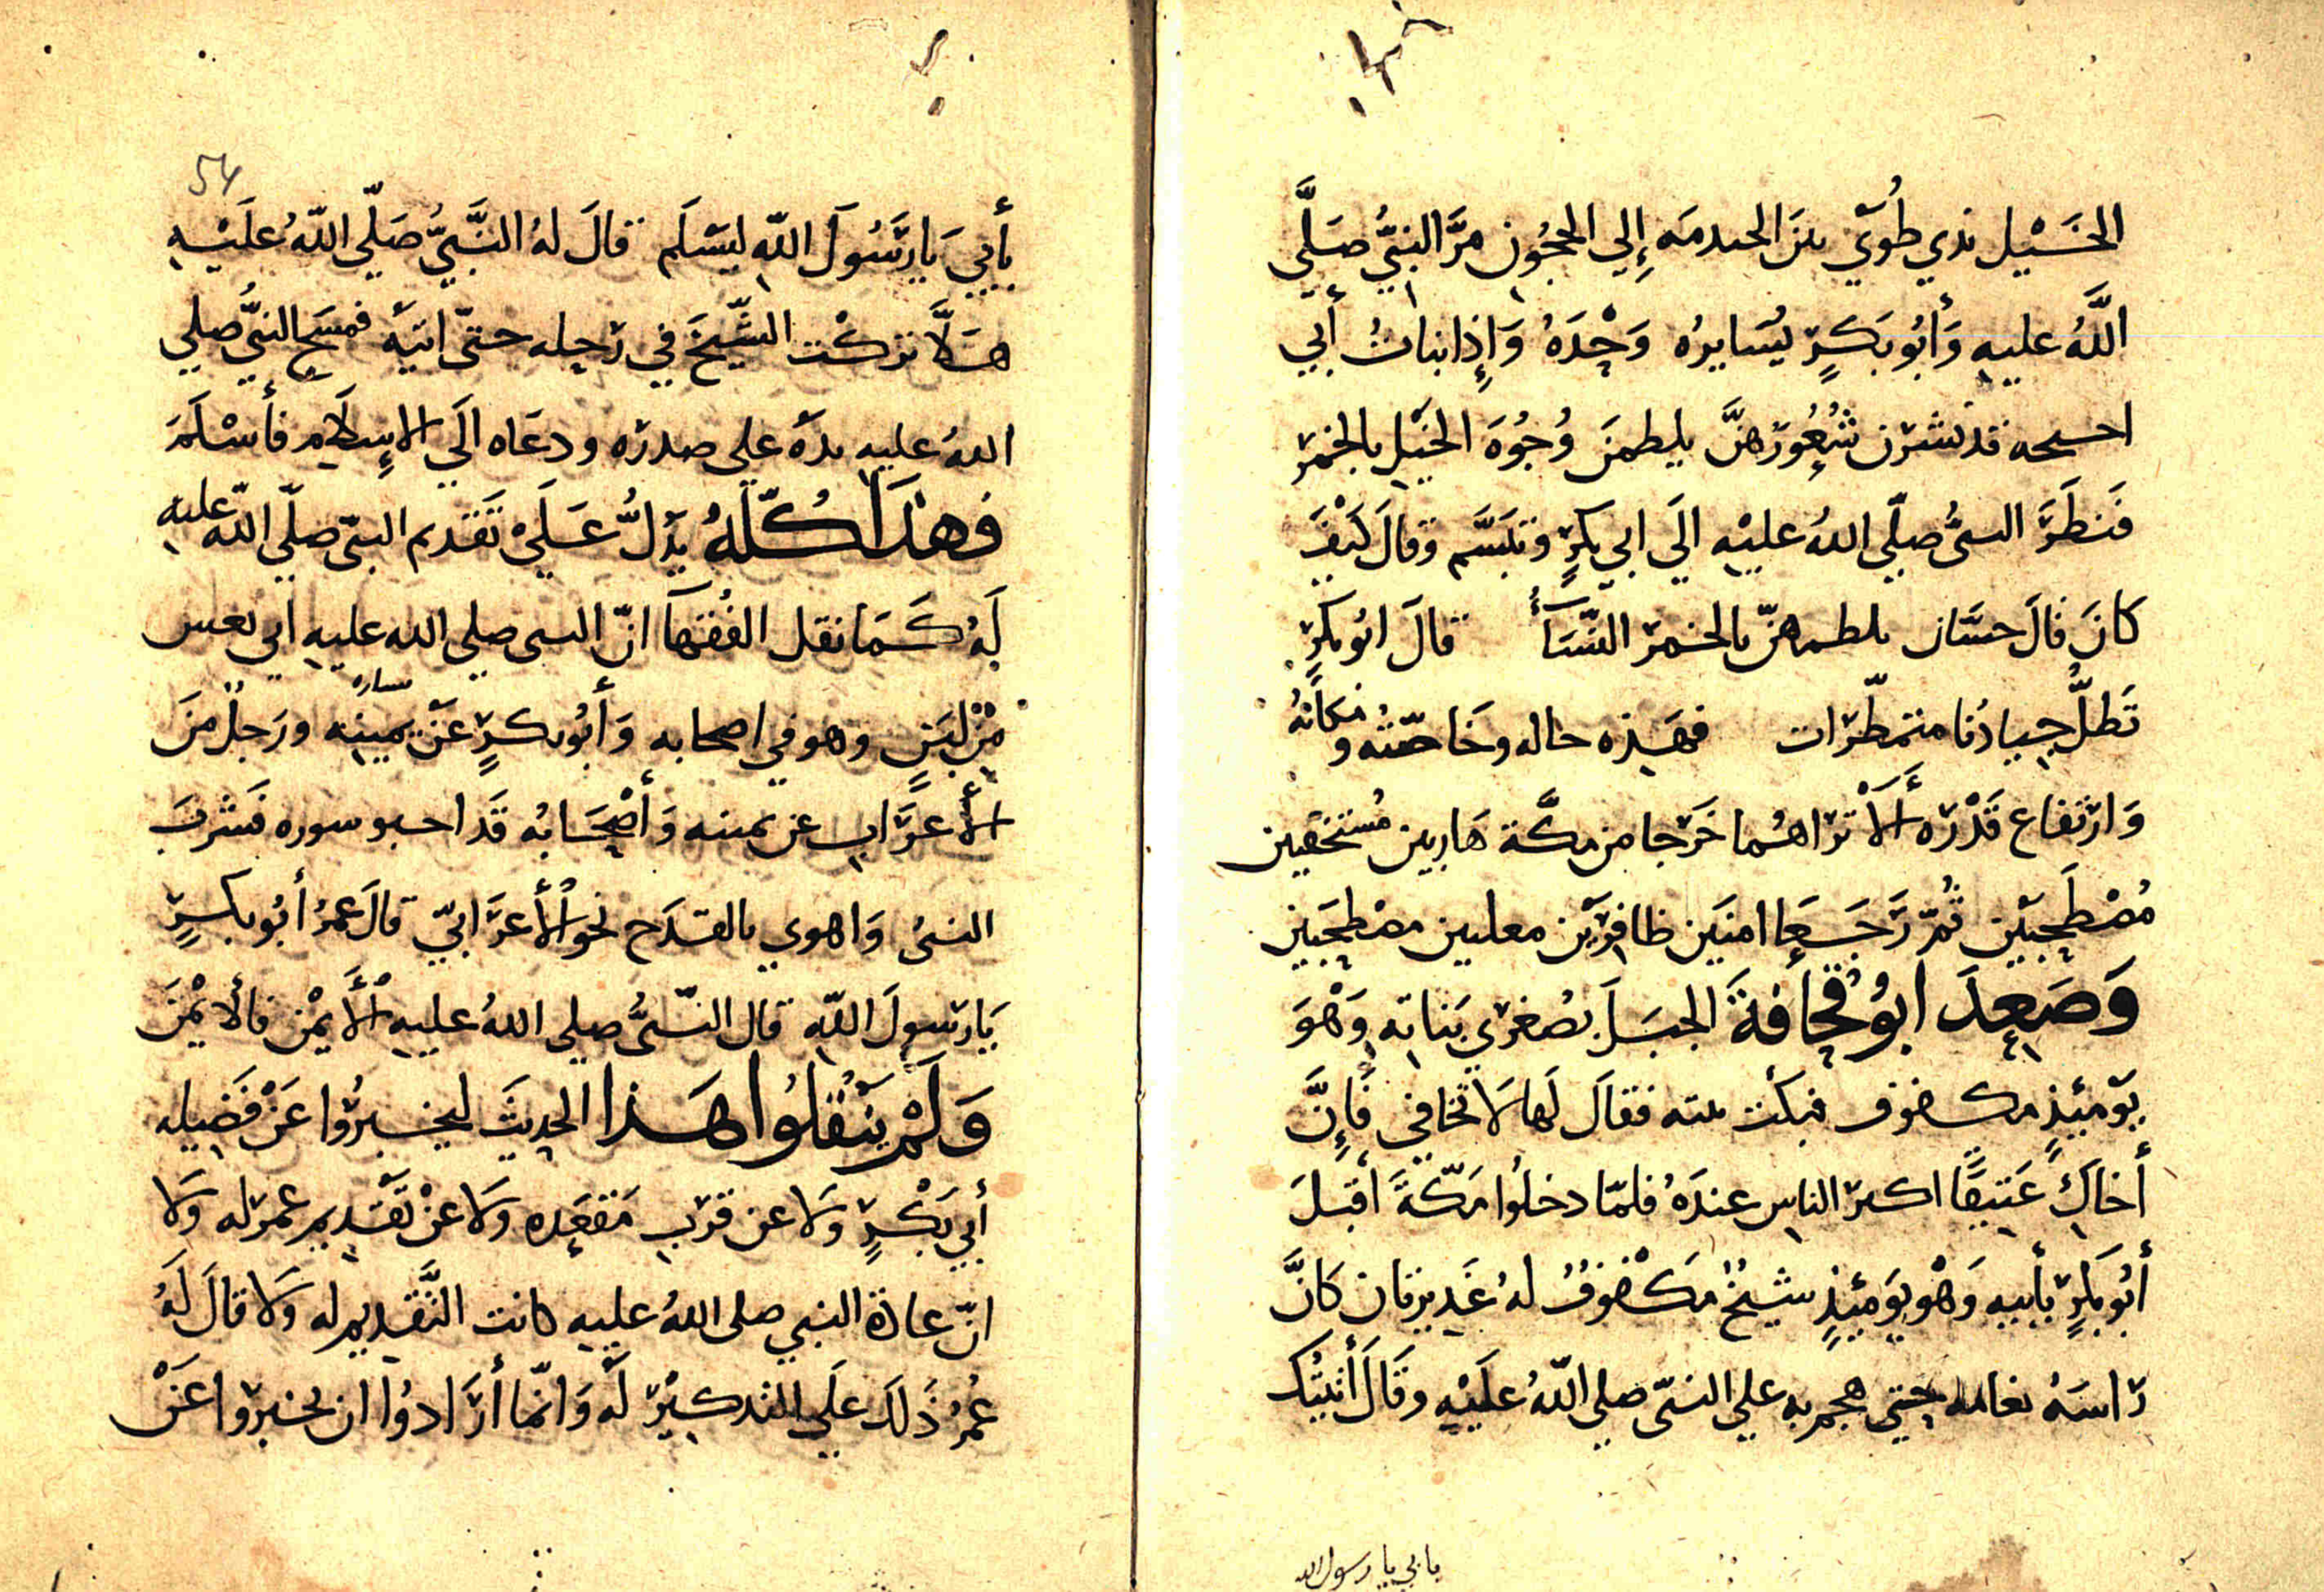 الخَيْل بذي طُوًى بين الحدمه إِلي الحجُون مرَّ النبيُّ صَلَّى
اللَّهُ عليه وَأبُو بَكرٍ يُسَايرُه وَحْدَهُ وَإِذا بناتُ أبي
احيحه قد نشرن شُعُورَهنَّ يلطمنَ وُجُوهَ الخَيْلِ بالخمر
فَنظَرَ النبىُّ صلّي اللهُ عليْهِ الَي ابي بكرٍ وتبَسَّم وقالَ كَيْفَ
كانَ قالَ حسّان يلطمهنّ بالخمر النّسَآءُ قالَ ابُو بكرٍ
تَظلُّ جيادُنا متمطّرات فهَذه حاله وخَاصّتُه ومَكانهُ
وَارتفاع قَدْره أَلَاْ تراهُما خَرَجا من مكَّة هَاربين مُستخفيين
مُصْطَحِبَيْن ثُمّ رَجَعَا امنَين ظافِرَيْن معلنين مصْطحِبَين
وَصَعِدَ ابُو قُحافةَ الجبَلَ بصُغري بَناتهِ وَهْوَ
يَوْمَئذٍ مكفوف فبكت بنته فقالَ لَها لَا تخافي فَإِنَّ
أخاكِ عَتيقًا اكبر الناسِ عندَهُ فلمّا دخلُوا مَكّةَ اقبَلَ
أبُو بَكرٍ بأبيه وَهْو يَوْمَئِذٍ شيْخٌ مَكْفوفٌ لهُ غَديرتان كَانَّ
رَاسَهُ ثغامه حتي هجم به علي النبىّ صلي اللّهُ علَيْهِ وقَالَ أتيتُك
بابي يا رسول الله
54
بأبيَ يَا رَسُولَ اللّهِ ليَسْلَم قالَ لهُ النَّبىُّ صَلّي اللّهُ علَيْهِ
هَلَّا تركْت الشّيخَ في رَحله حتّى اتيَهُ فمسَحَ النبىُّ صلي
اللهُ عليهِ يدَهُ علي صدره ودعَاه الَي الإِسلَام فأَسْلَمَ
فهذَا كُلّهُ يَدُلُّ عَلَيْ تَقدم النبىّ صلّي اللّه عليه
لَهُ كَمَا نقل الفُقهآ انّ النبى صلي الله عليهِ اتي بعس
مِنْ لبَنٍ وهو في اصحابه وَأبُو بكرٍ عَنْ يمينِه يساره ورَجلٌ منَ
الأَعرَاب عن يمينه وَأصْحَابُه قَد احبو سوره فشَربَ
النبىُ وَاهوي بالقدَح نحو الأَعرَابيّ قالَ عمرُ أبُو بكرٍ
يَا رَسولَ اللّهِ قال النّبىُّ صلي اللهُ عليهِ الأَيْمن فالأَيْمَن
وَلَمْ يَنْقلُوا هَذا الحديثَ ليخبرُوا عَنْ فَضيله
أبي بَكْرٍ وَلا عن قربِ مَقعَده وَلا عَنْ تَقْديم عمر له وَلا
انّ عادة النبي صلى اللهُ عليهِ كانت التَّقديم له وَلا قالَ لَهُ
عُمرُ ذَلكَ علَي التذكيْرِ لَهُ وَانّما أرَادوُا ان يخبروا عَنْ